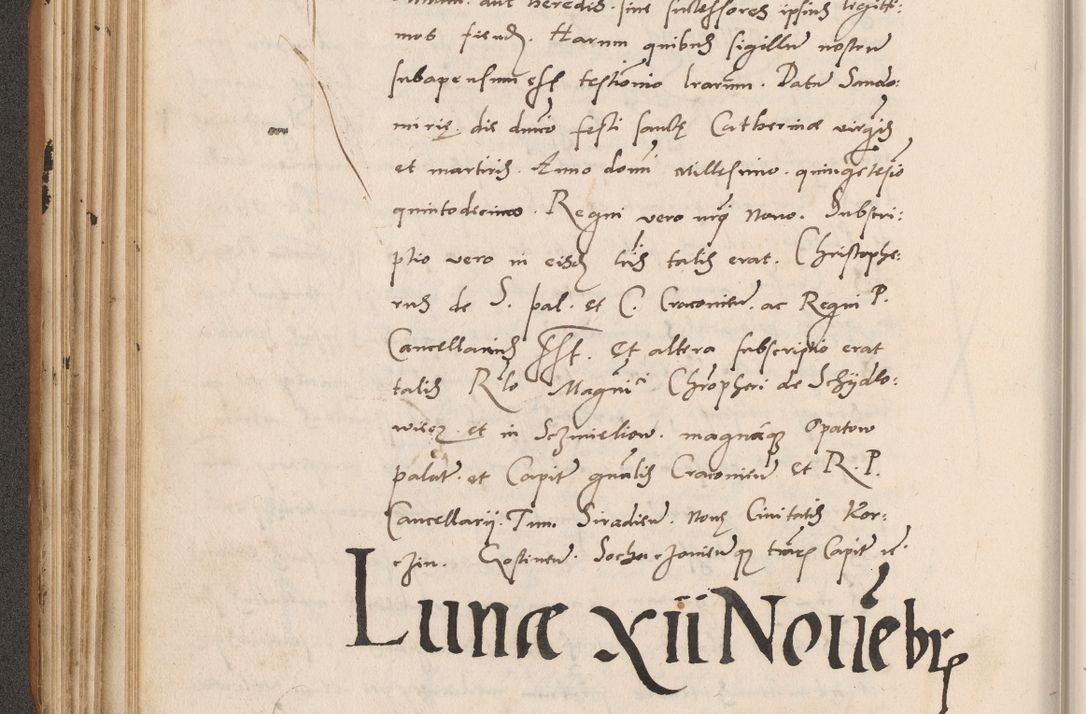 aut heredis sive successores ipsius legitti:
mos fiend. Harum quibus sigillu nostru
subapensum est testionio lrarum. Datu Sando:
mirię. die dnico festi sanctę Catherinæ virgīs
et martiris. Anno domi Millesimo. quingētesīo
quintodecimo. Regni vero nri Nono. Subscri:
ptio vero in eisd lris talis erat. Christophe:
rus de S. pal. et C. Cracovien. ac Regni P.
Cancellarius sst. Et altera subscriptio erat
talis Rlo Magnici Chrōpheri de Schydlo:
wiecz. et in Sczmieliow. magnāqz Opatow
palat. et Capit gnālis Cracovien et R. P.
Cancellarij. Tum. Siradien. Novę Civitatis Kor:
czin. Gostinen. Sochaczovien qz trarz Capit rc.
Lunæ xii Novēbr